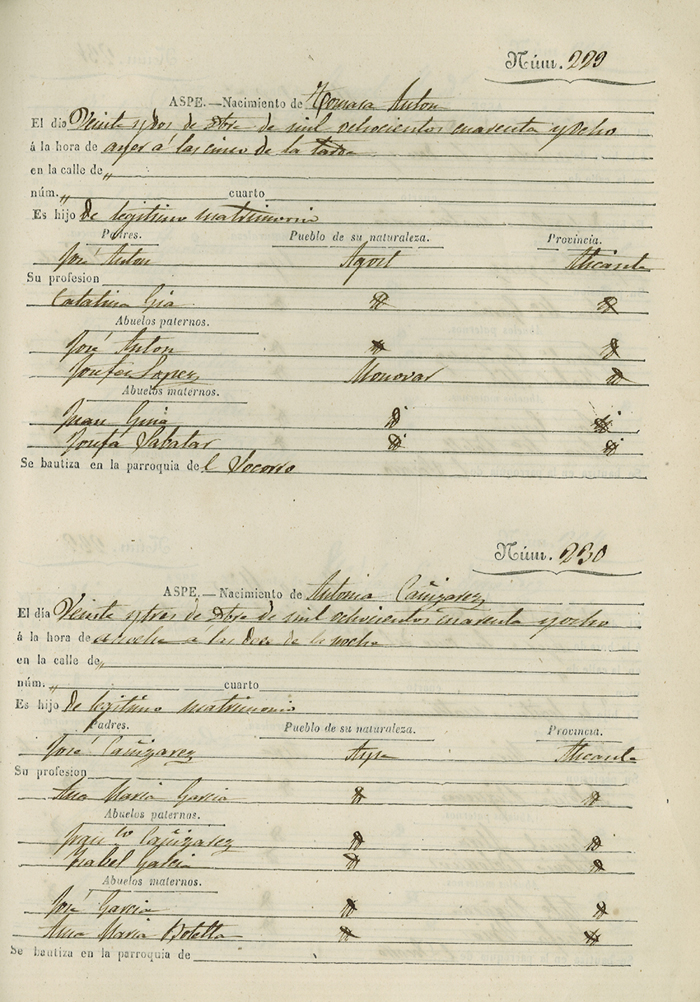 Núm. 229
ASPE.—Nacimiento de Tomasa Anton
El dia Veinte y dos de de mil ochocientos cuarenta y ocho
á la hora de ayer á las cinco de la tarde
en la calle de „
núm. „ cuarto
Es hijo de legitimo matrimonio
Padres. Pueblo de su naturaleza. Provincia.
José Anton Agost Alicante
Su profesion
Catalina
Abuelos paternos.
José Anton
Josefa Lopez Monovar
Abuelos maternos.
Juan
Josefa Sabater
Se bautiza en la parroquia del Socorro
Núm. 230
ASPE.—Nacimiento de Antonia Cañizarez
El dia Veinte y tres de de mil ochocientos cuarenta y ocho
á la hora de anoche á las doce de la noche
en la calle de „
núm. „ cuarto
Es hijo de legitimo matrimonio
Padres. Pueblo de su naturaleza. Provincia.
José Cañizarez Aspe Alicante
Su profesion
Ana Maria Garcia
Abuelos paternos.
Cañizarez
Isabel Garcia
Abuelos maternos.
José Garcia
Ana Maria Botella
Se bautiza en la parroquia de